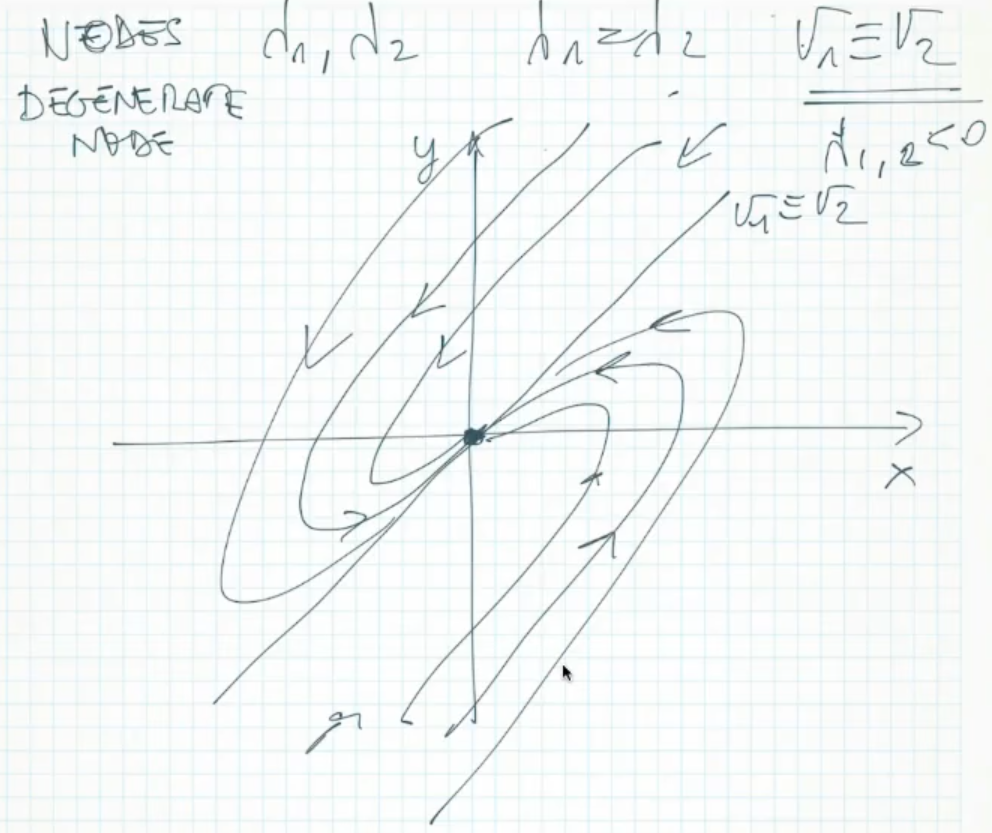 NODES λ₁, λ₂ λ₁ = λ₂ v₁ ≡ v₂
DEGENERATE
NODE
λ₁,₂ < 0
y
v₁ ≡ v₂
x